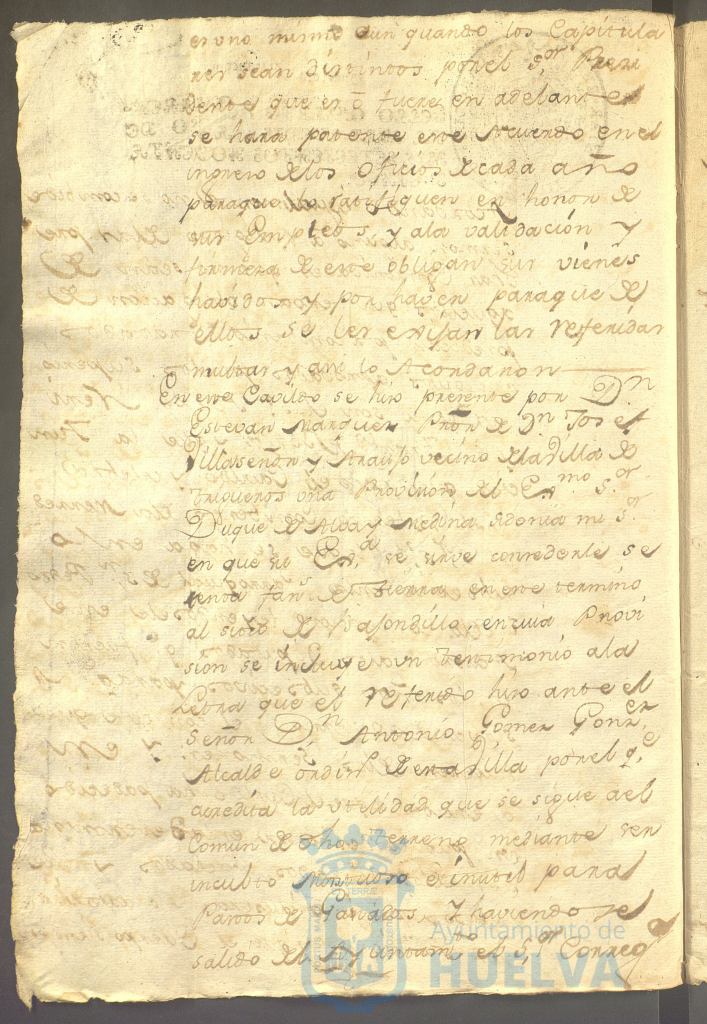 es uno mismo aun quando los Capitula
res sean distintos por el S.or Presi
dente que es ó fuere en adelante
se hará patente este Acuerdo en el
ingreso de los oficios de cada año
para que lo ratifiquen en honor de
sus Empleos, y ala validación y
firmeza de este obligan sus vienes
havidos y por haver para que de
ellos se les exijan las referidas
multas y asi lo Acordaron
En este Cavildo se hizo presente por D.n
Estevan Marquez Pñor de D.n Josef
Villaseñor y Araujo vecino dela Villa de
Trigueros una Provision del Ex.mo S.or
Duque de Alva y Medina Sidonia mi S.or
en que su Ex.a se sirve concederle se
senta fan.s de tierra en este termino
al sitio de en cuia Provi
sion se incluye un testimonio ala
Letra que el referido hizo ante el
Señor D.n Antonio Gomez Gonz.ez
Alcalde ordin.o de esta Villa por el q.e
acredita la utilidad que se sigue ael
Comun de dho terreno mediante ser
inculto Montuoso e inutil para
Pastos de Ganados, Y haviendose
salido del Ayuntam.to el S.or Correg.r
Ayuntamiento de
HUELVA